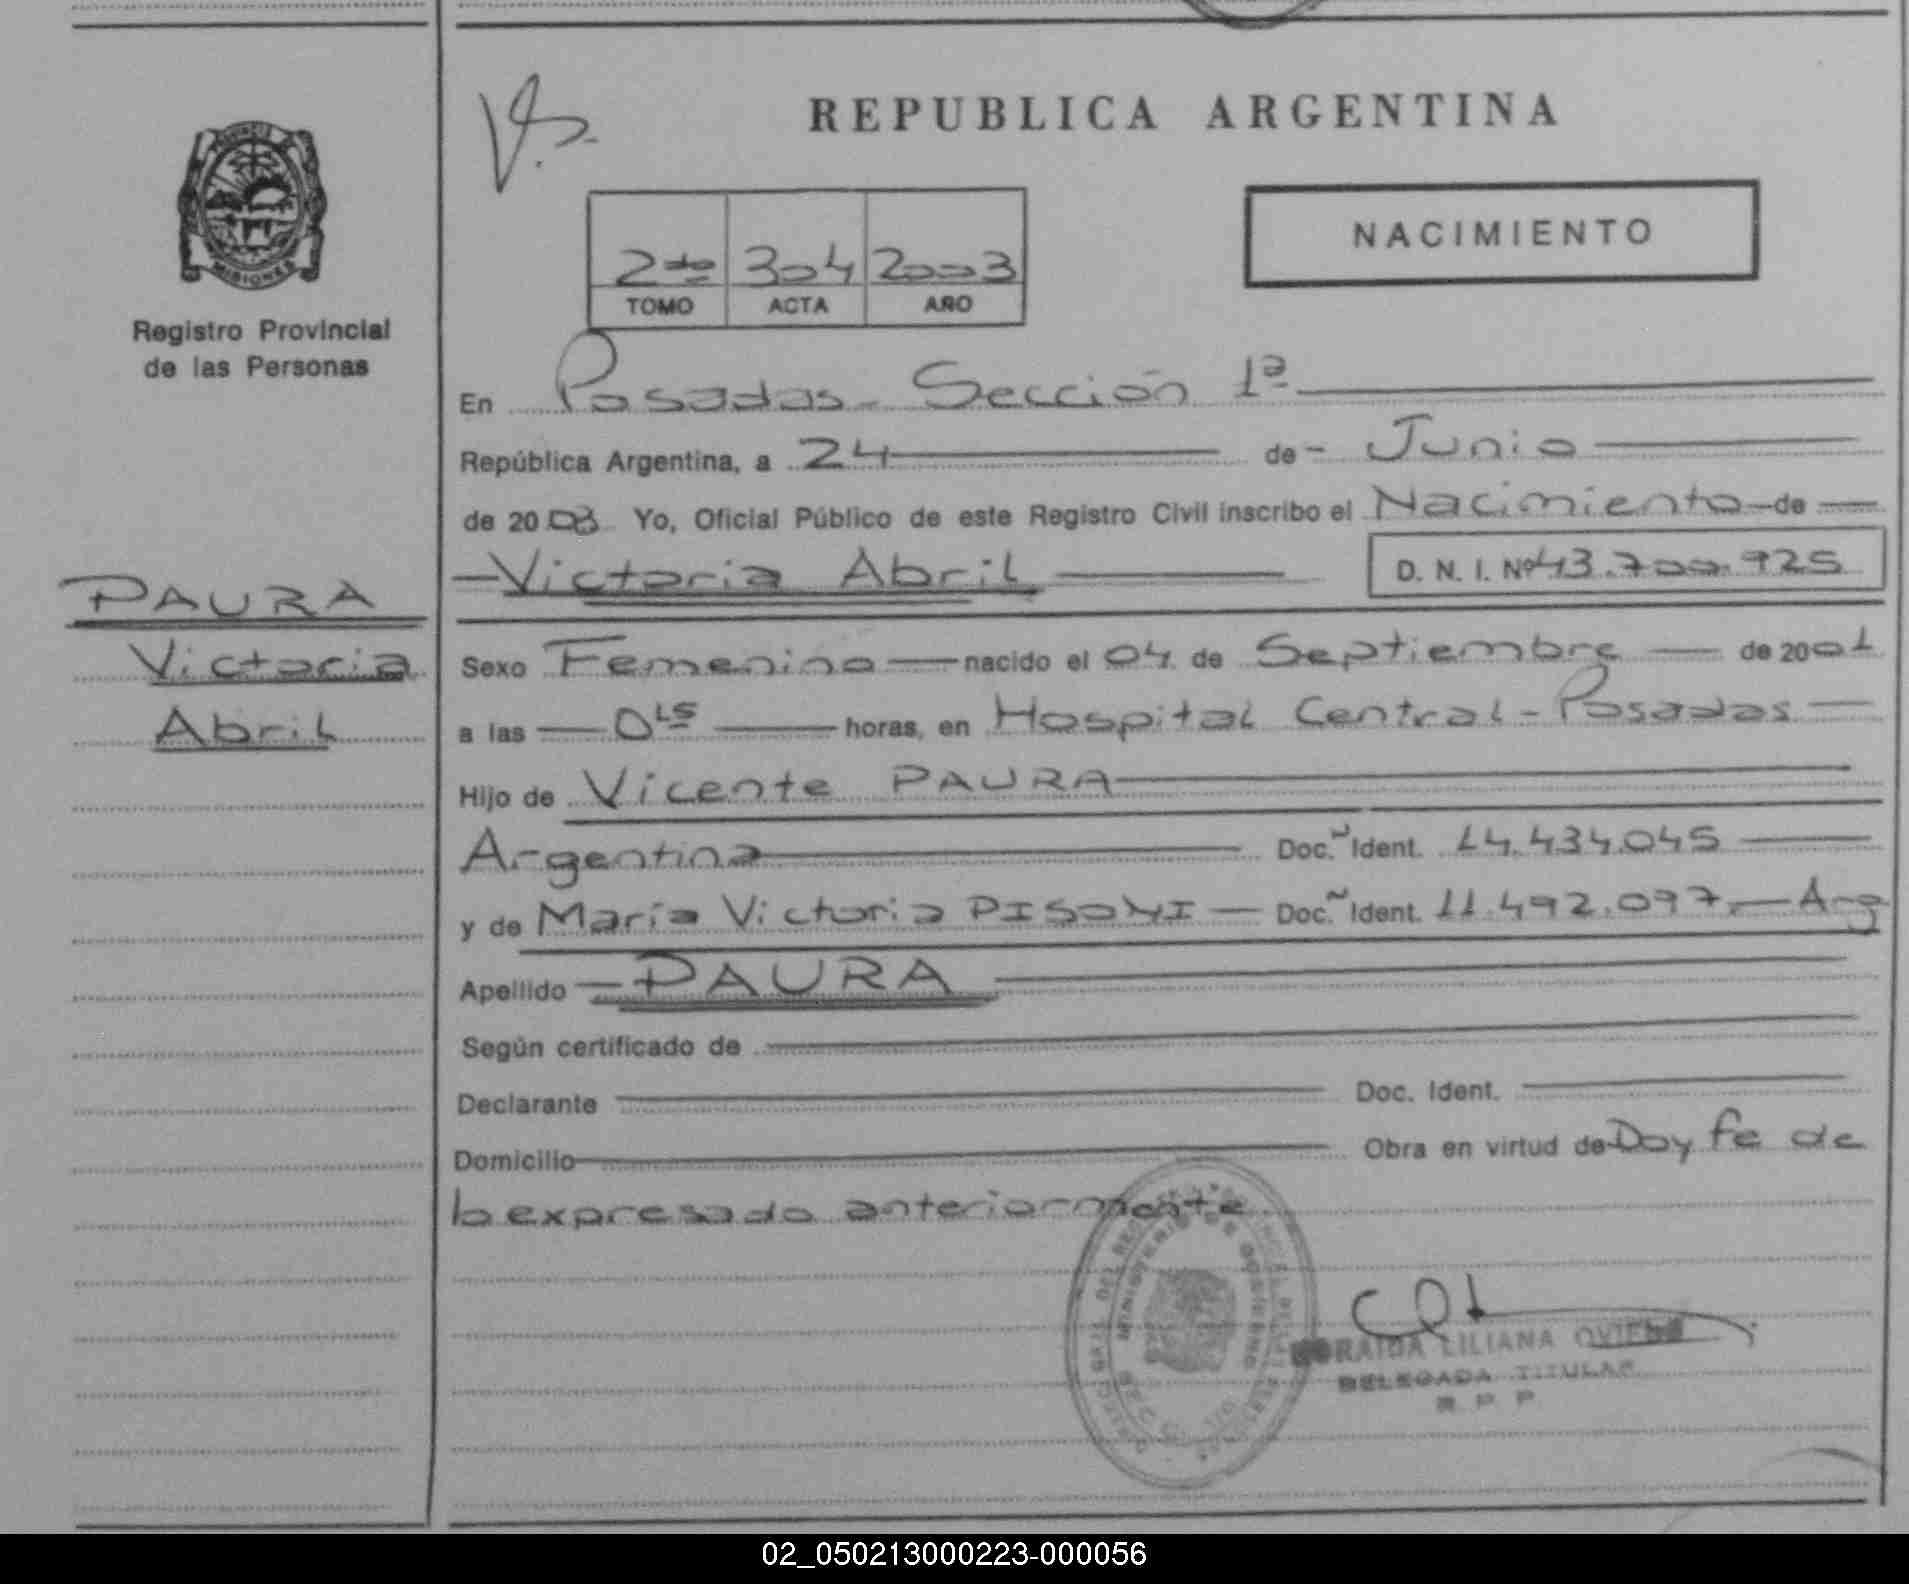 REPUBLICA ARGENTINA
NACIMIENTO
2do 304 2003
TOMO ACTA AÑO
MISIONES
Registro Provincial
de las Personas
En Posadas - Sección 1ª
República Argentina, a 24 de - Junio
de 2003 Yo, Oficial Público de este Registro Civil inscribo el Nacimiento de
Victoria Abril D. N. I. Nº 43.700.925
PAURA
Victoria
Abril
Sexo Femenino nacido el 04 de Septiembre de 2001
a las 0 horas, en Hospital Central - Posadas
Hijo de Vicente PAURA
Argentina Doc. Ident. 14.434.045
y de María Victoria PISONI Doc. Ident. 11.492.097.- Arg
Apellido PAURA
Según certificado de
Declarante Doc. Ident.
Domicilio Obra en virtud de Doy fe de
lo expresado anteriormente.
LILIANA
DELEGADA TITULAR
R. P. P.
02_050213000223-000056